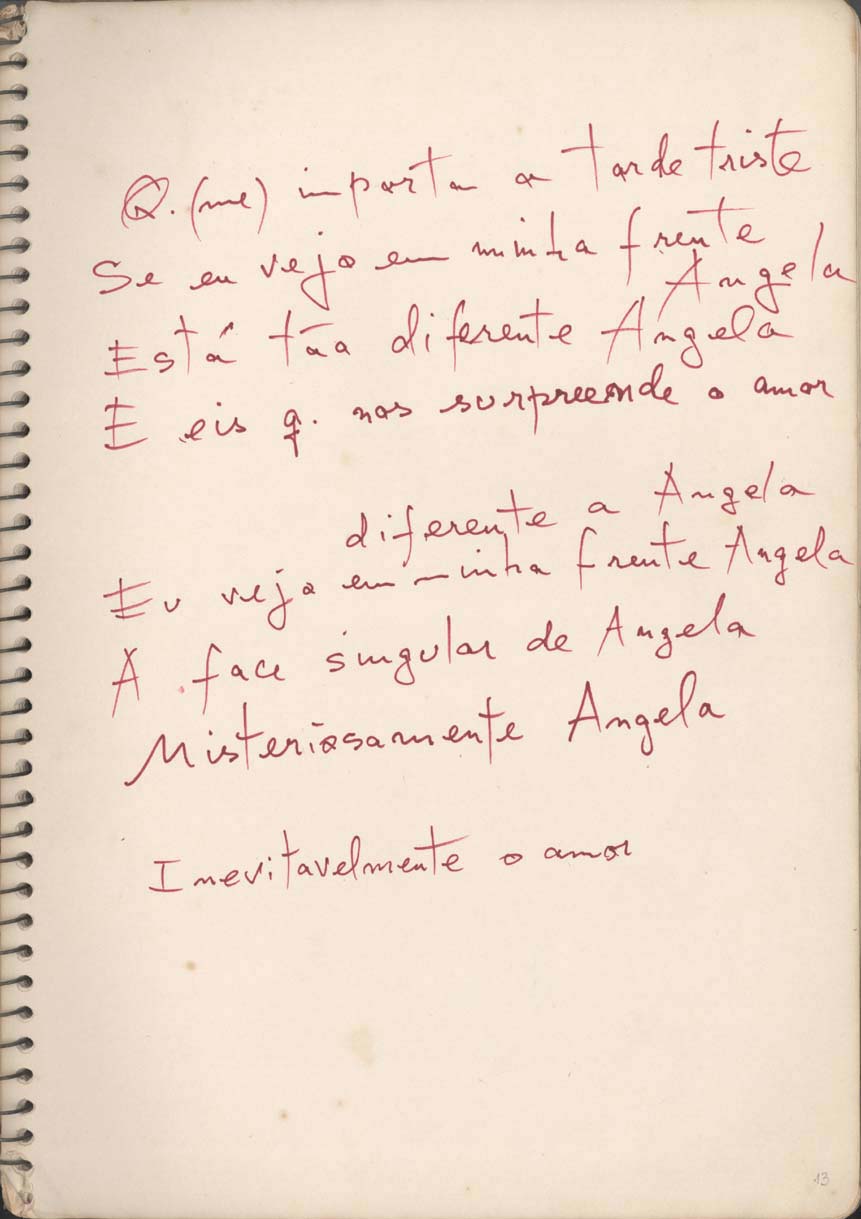 Q. (me) importa a tarde triste
Se eu vejo em minha frente
Angela
Está tão diferente Angela
E eis q. nos surpreende o amor
diferente a Angela
Eu vejo em minha frente Angela
A face singular de Angela
Misteriosamente Angela
Inevitavelmente o amor
13